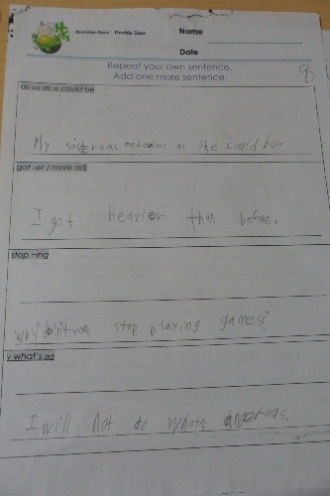 Double Dare Name
Date
Repeat your own sentence.
Add one more sentence.
9
as adj as sb could be
My sister as meticulous as she could be.
got -er / more adj
I got heavier than before.
stop -ing
Why don't you stop playing games?
v what's adj
I will not do what's dangerous.